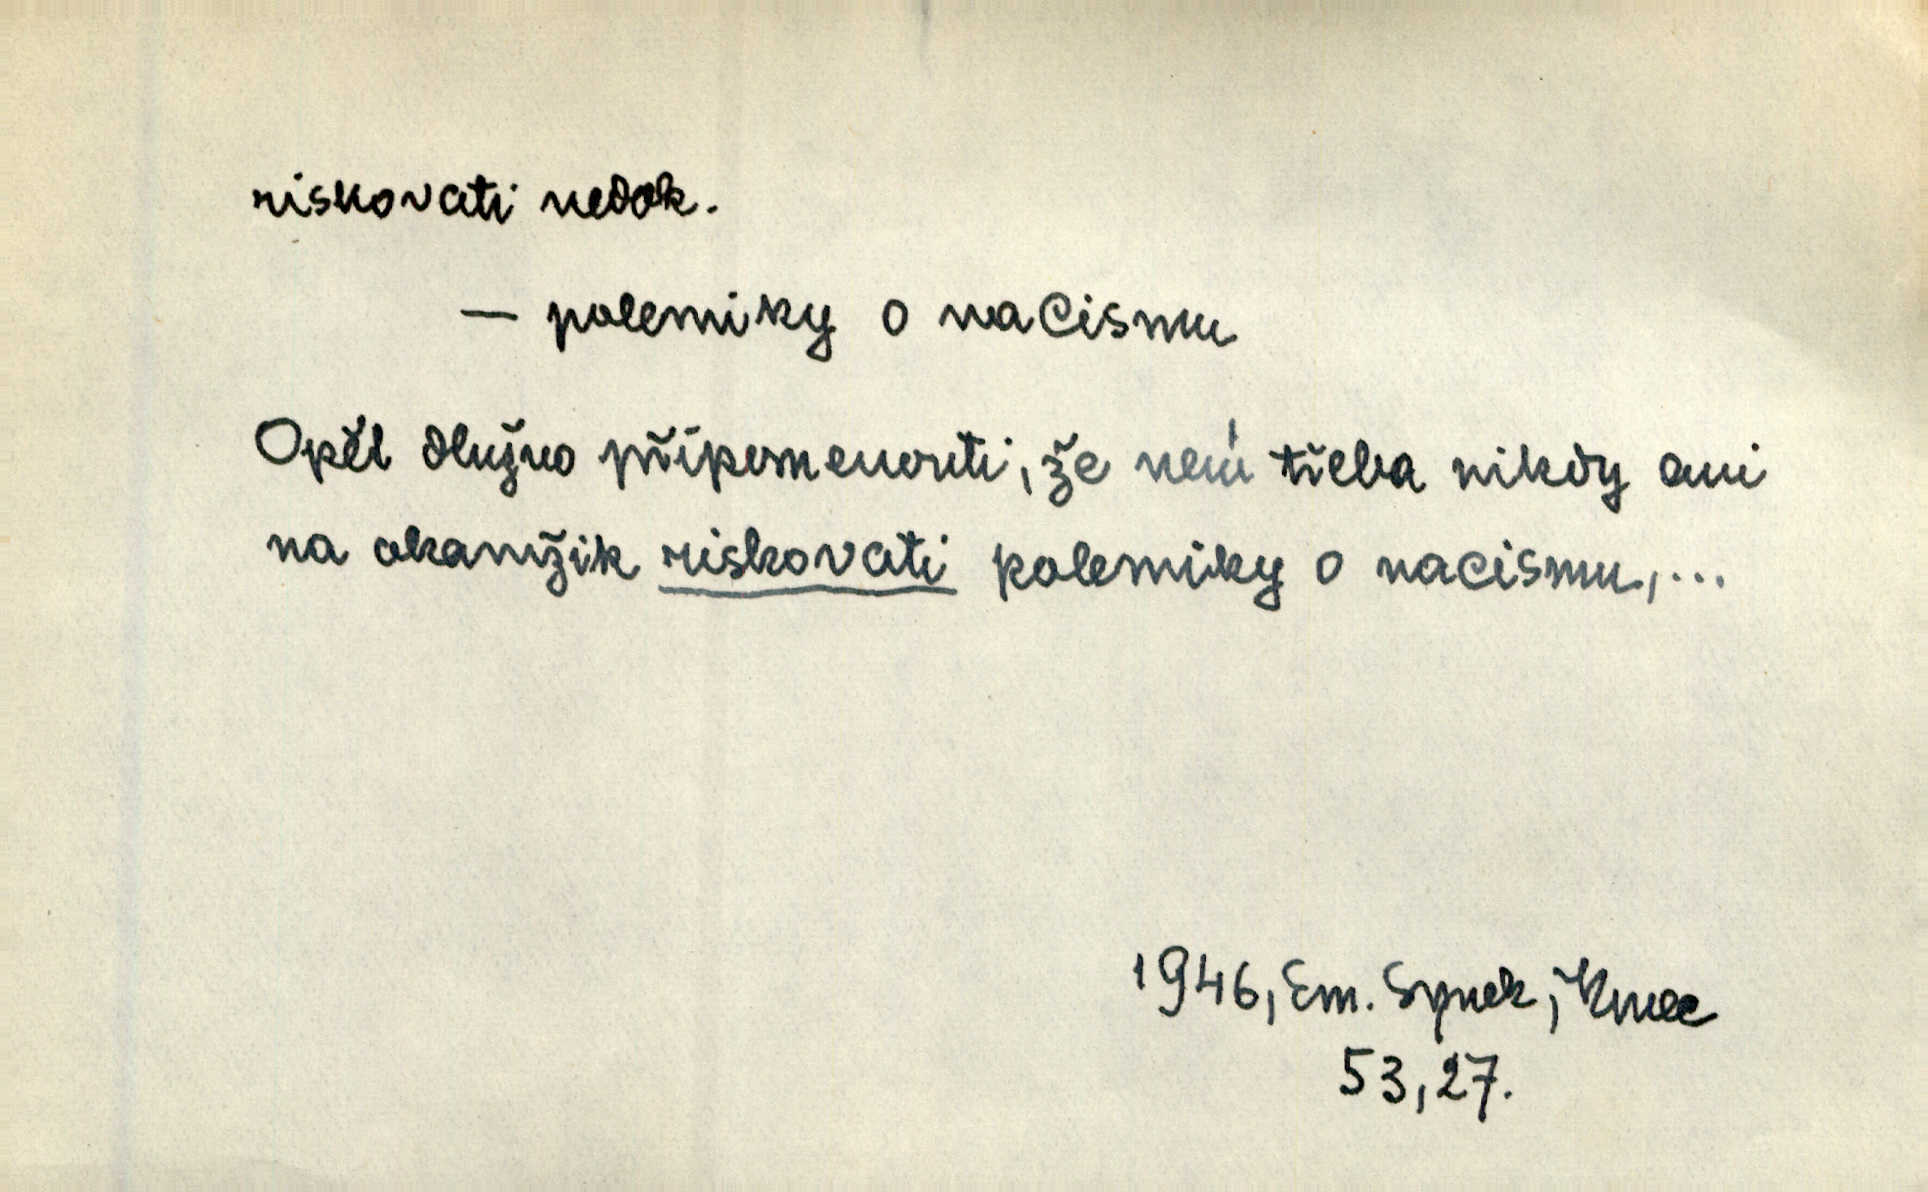 riskovati nedok.
— polemiky o nacismu
Opět dlužno připomenouti, že není třeba nikdy ani
na okamžik riskovati polemiky o nacismu,...
1946, Em. Synek, Kmec
53, 27.